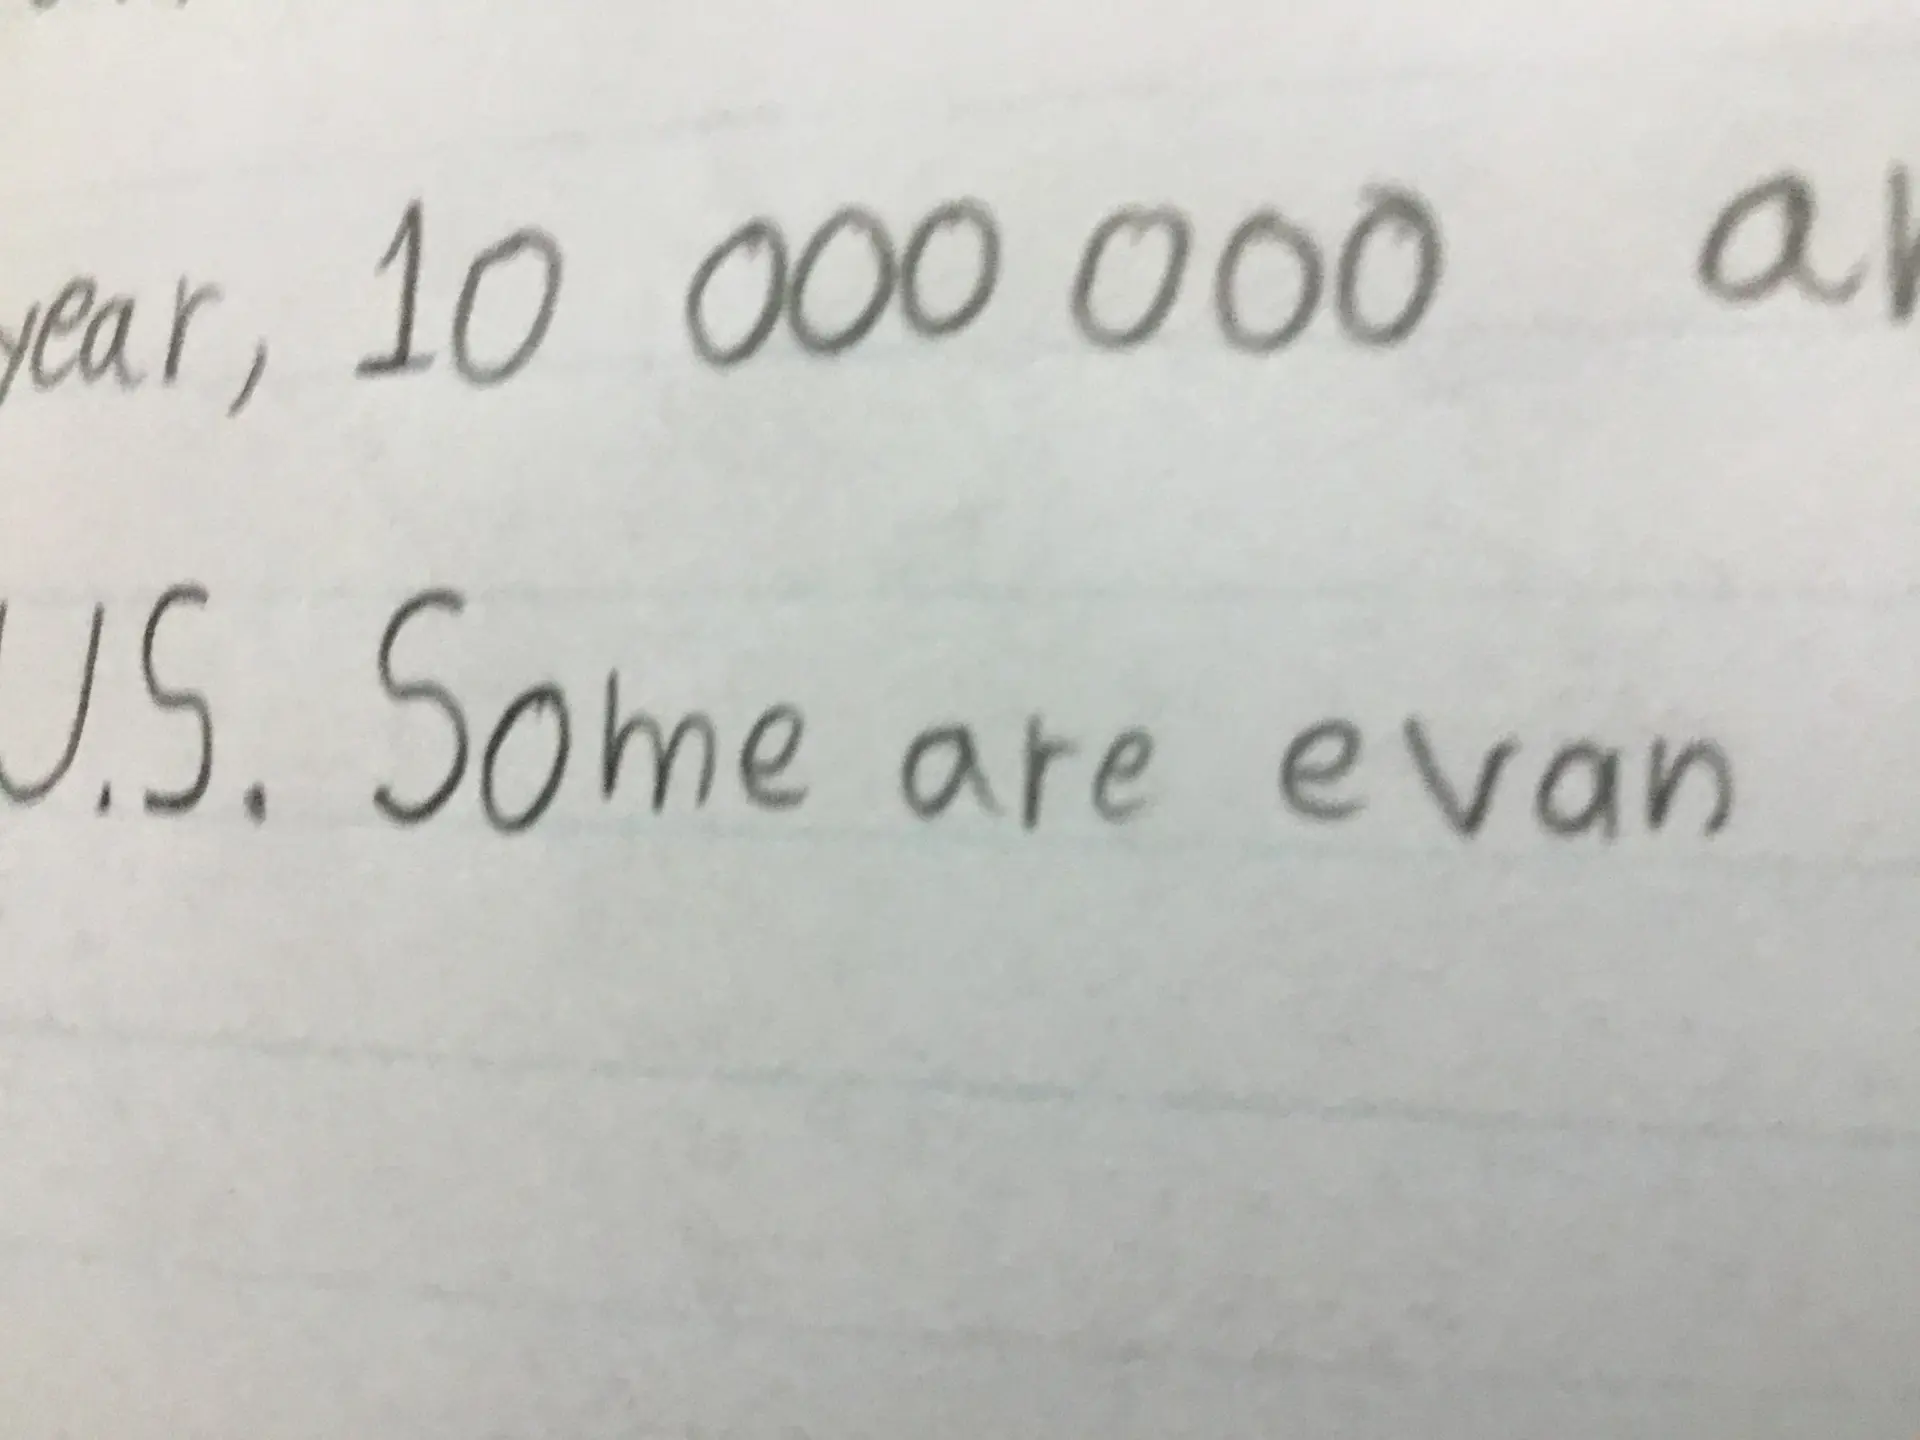 year, 10 000 000
U.S. Some are evan